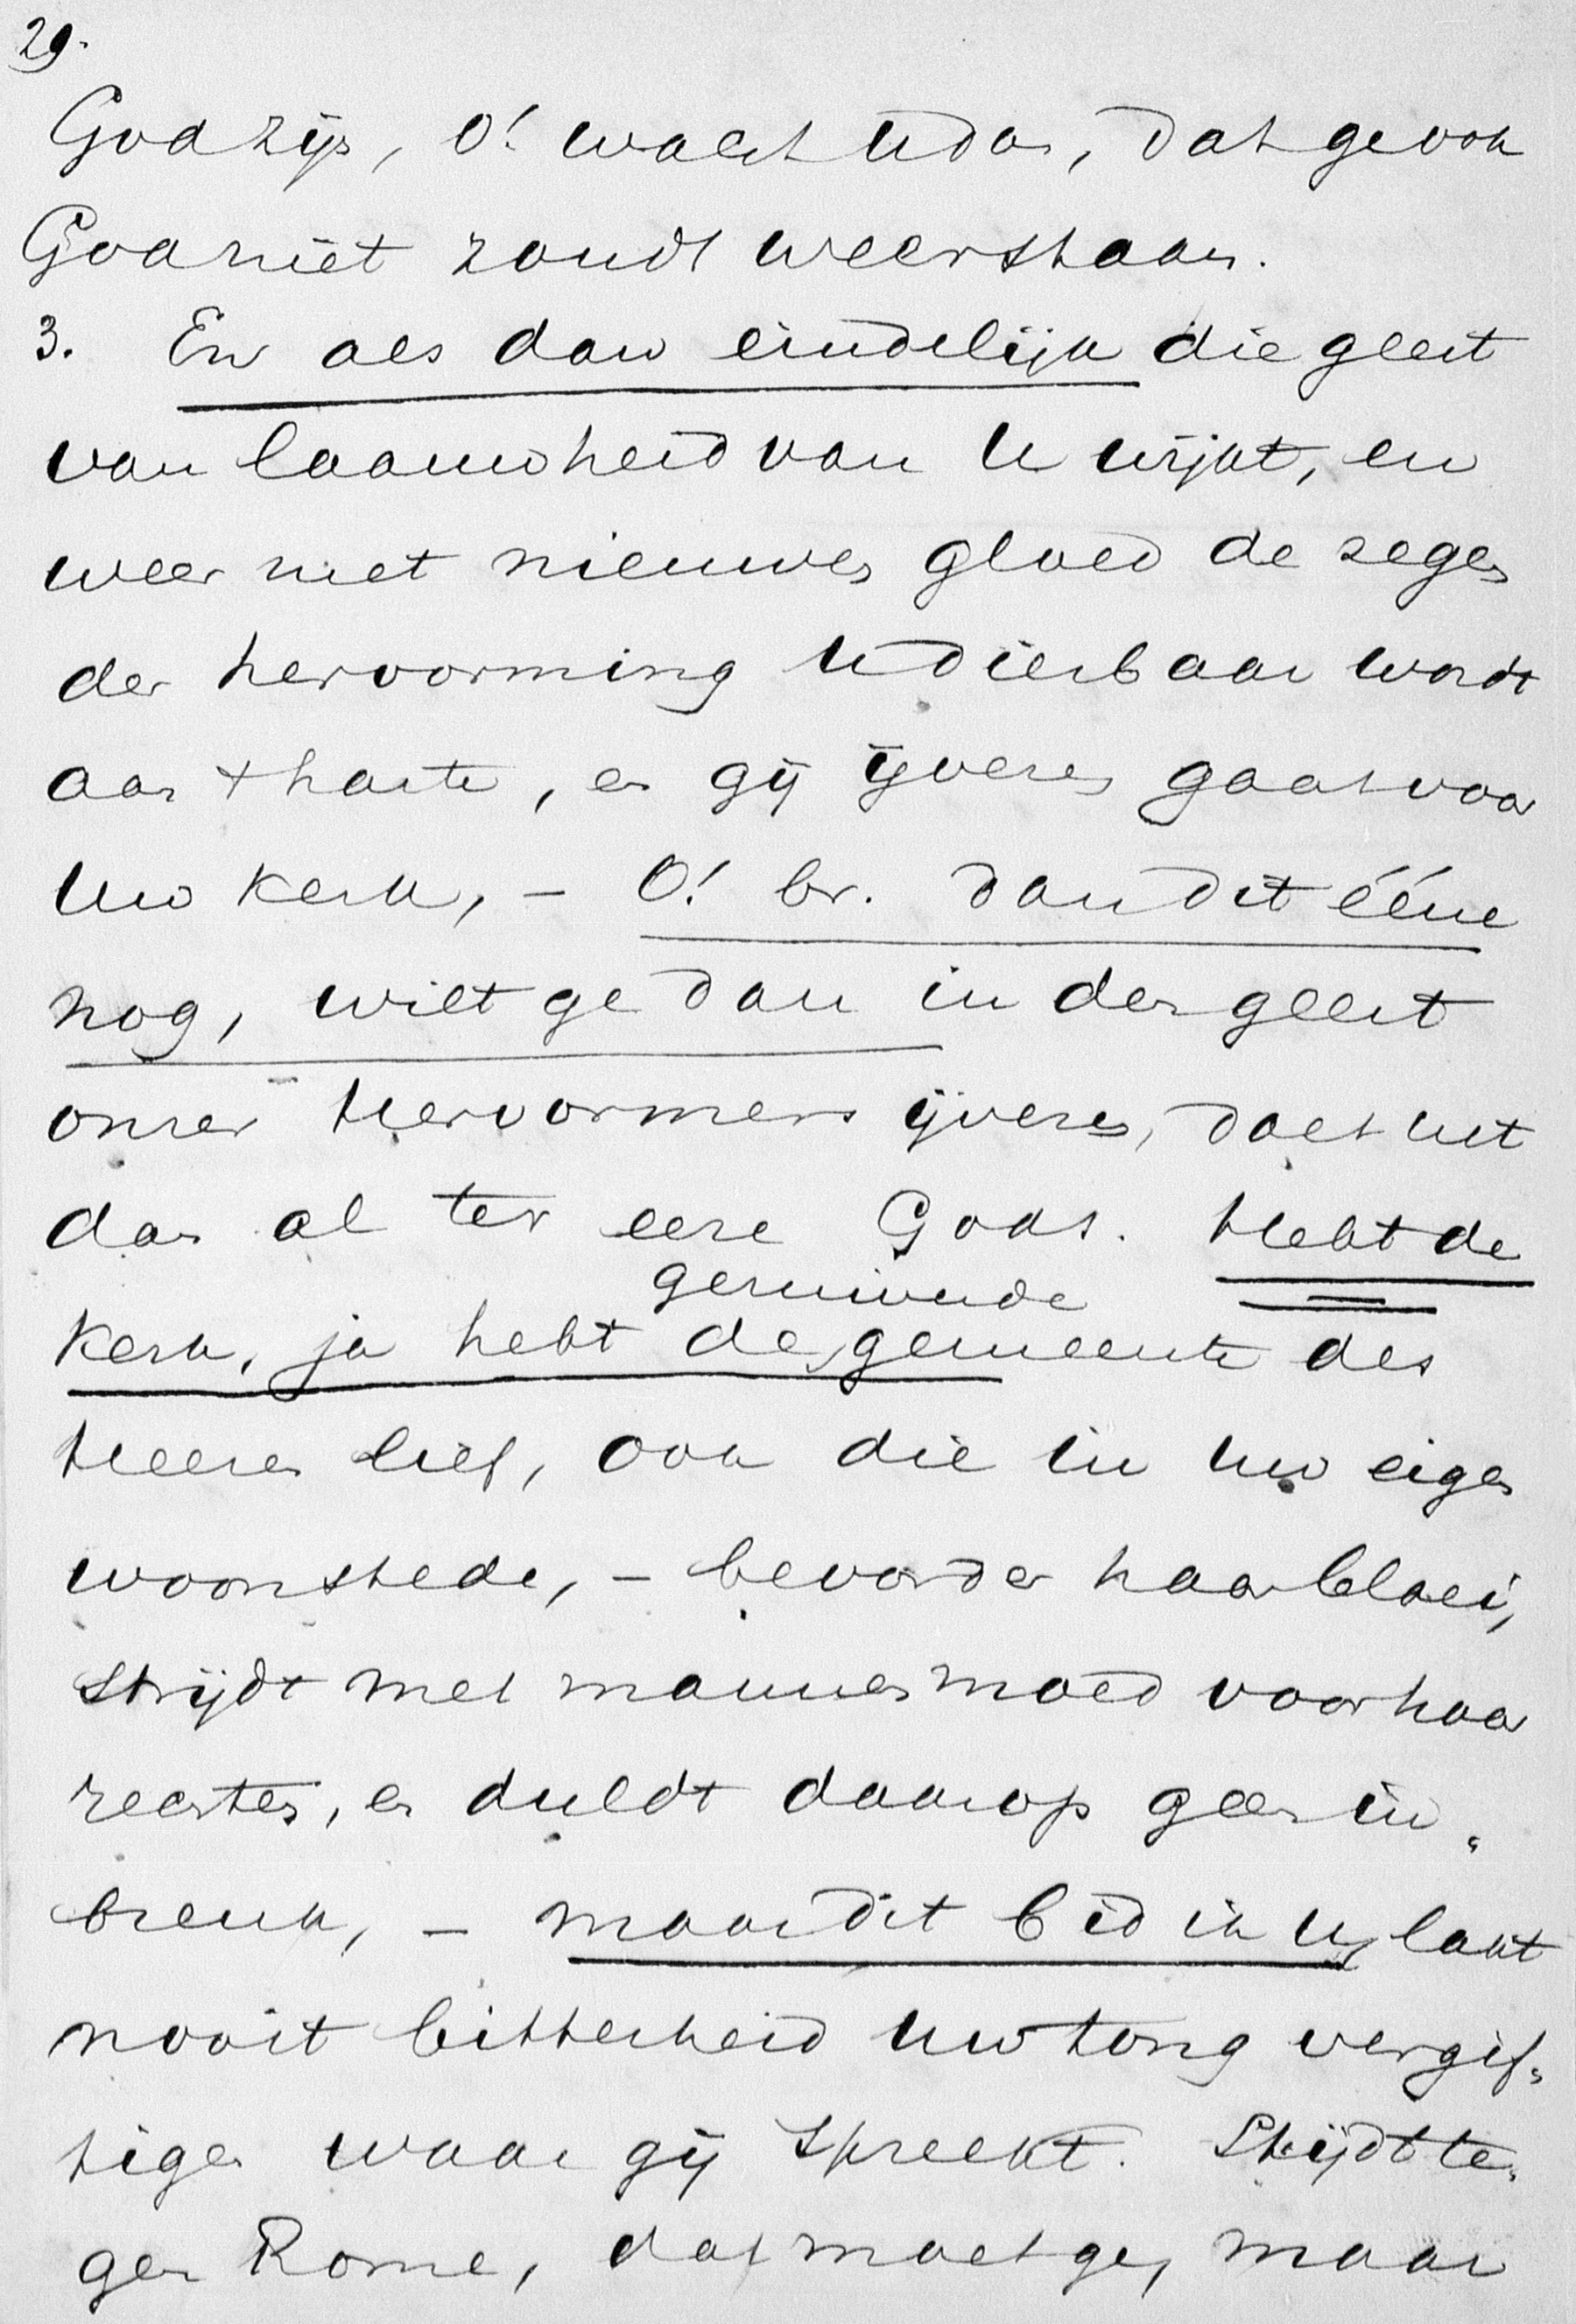 29.
God zijn, O! wacht U dan, dat ge ook
God niet zoudt weerstaan.
3. En als dan eindelijk die geest
van laauwheid van U wijkt, en
weer met nieuwen gloed de zegen
der hervorming U dierbaar wordt
aan 't harte, en gij ijveren gaat voor
Uw kerk, – O! br. dan dit ééne
nog, wilt ge dan in den geest
onzer Hervormers ijveren, doet het
dan al ter eere Gods. Hebt de
kerk, ja hebt de gemeente des
Heeren lief, ook die in Uw eigen
woonstede, – bevorder haar bloei,
strijdt met mannenmoed voor haar
rechten, en duldt daarop geen in-
breuk, – maar dit bid ik U, laat
nooit bitterheid Uw tong vergif-
tigen waar gij spreekt. Strijdt te-
gen Rome, dat moet ge, maar